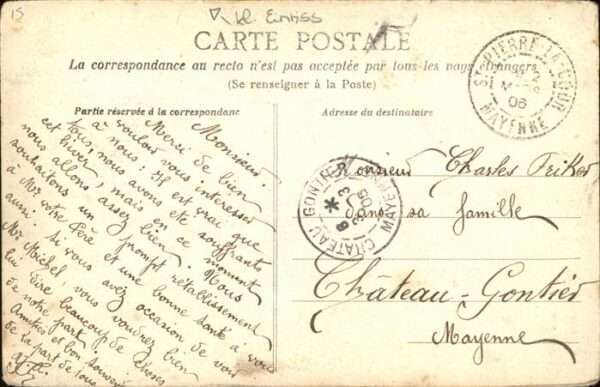 15
kl. Einriss
CARTE POSTALE
La correspondance au recto n'est pas acceptée par tous les pays étrangers
(Se renseigner à la Poste)
Partie réservée à la correspondance
Adresse du destinataire
Monsieur.
Merci de bien
vouloir vous intéresser
à nous. Il est vrai que
tous, nous avons été souffrants
cet hiver, mais en ce moment
nous allons assez bien. Nous
souhaitons un prompt rétablissement
à Mr votre Père et une bonne santé à vous
aussi. Si vous avez occasion de voir
Mr Michel, vous voudrez bien
lui dire beaucoup de choses
de notre part.
Amitiés et bon souvenir
de la part de tous
Monsieur Charles Triker
dans sa famille
Château-Gontier
Mayenne
ST PIERRE-LA-COUR
MARS
06
MAYENNE
CHATEAU-GONTIER
MAYENNE